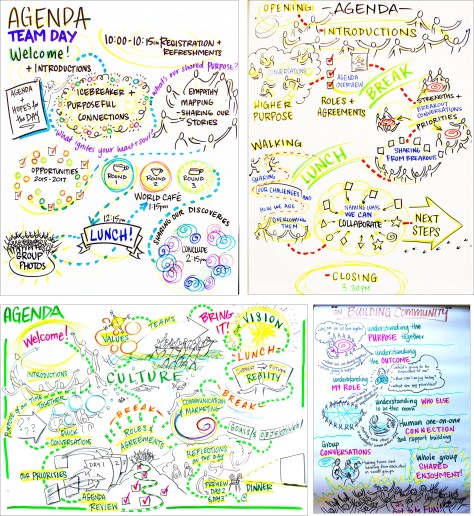 AGENDA
TEAM DAY
Welcome!
+ INTRODUCTIONS
10:00-10:15 REGISTRATION +
REFRESHMENTS
AGENDA
+
HOPES for
the DAY
ICEBREAKER +
PURPOSEFUL
CONNECTIONS
What's our shared PURPOSE?
EMPATHY
MAPPING
- SHARING OUR
STORIES
What ignites your heart + soul?
OPPORTUNITIES
2015-2017
ROUND
1
ROUND
2
ROUND
3
WORLD CAFÉ
1:15pm
12:15pm
LUNCH!
GROUP
PHOTOS
SHARING OUR DISCOVERIES
CONCLUDE
2:15pm
OPENING
-AGENDA-
INTRODUCTIONS
CONVERSATIONS
HIGHER
PURPOSE
AGENDA
OVERVIEW
ROLES +
AGREEMENTS
BREAK
STRENGTHS +
BREAKOUT
CONVERSATIONS
PRIORITIES
SHARING
FROM BREAKOUT
WALKING
LUNCH
SHARING
OUR CHALLENGES AND
HOW WE ARE
OVERCOMING
THEM
WE CAN
COLLABORATE
NEXT
STEPS
-CLOSING
3:30PM
AGENDA
Welcome!
INTRODUCTIONS
VALUES
TEAMS
BRING
IT!
VISION
LUNCH
CULTURE
CURRENT
FUTURE
REALITY
PURPOSE of our TIME TOGETHER
DUCK
CONVERSATIONS
BREAK
ROLES &
AGREEMENTS
COMMUNICATION
MARKETING
BREAK
GOALS & OBJECTIVES!
OUR PRIORITIES
DAY 1
AGENDA
REVIEW
REFLECTIONS
THE DAY
PREVIEW
DAY 2
DAY 3
DINNER
on BUILDING COMMUNITY
understanding the
PURPOSE together
understanding the
OUTCOME
understanding
MY ROLE
understanding WHO ELSE
is in the room
Human one-on-one
CONNECTION
and rapport building
Group
CONVERSATIONS
Whole group
SHARED
ENJOYMENT!